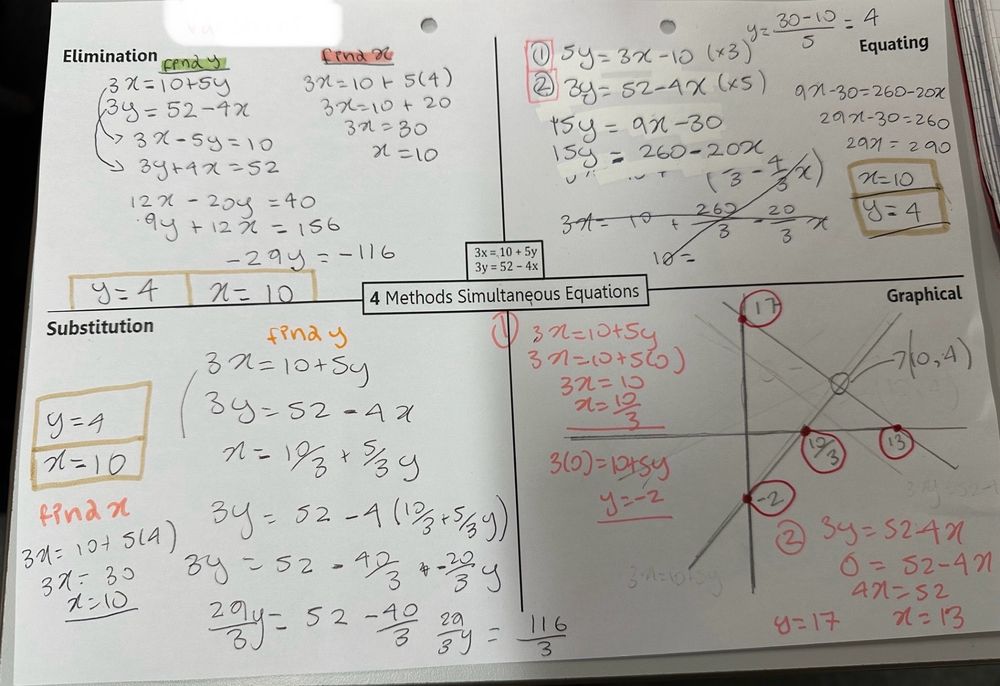 Elimination find y
3x = 10+5y
3y = 52-4x
3x-5y = 10
3y+4x = 52
12x - 20y = 40
9y + 12x = 156
-29y = -116
y=4 x=10
find x
3x = 10 + 5(4)
3x = 10 + 20
3x = 30
x = 10
y = 30-10/5 = 4
Equating
① 5y = 3x-10 (x3)
② 3y = 52-4x (x5)
15y = 9x-30
15y = 260-20x
3x = 10 + 260/3 - 20/3 x
10 =
9x-30=260-20x
29x-30=260
29x = 290
x=10
y=4
3x = 10 + 5y
3y = 52 - 4x
4 Methods Simultaneous Equations
Substitution
find y
3x = 10+5y
3y = 52 - 4x
x = 10/3 + 5/3 y
3y = 52 - 4(10/3 + 5/3 y)
3y = 52 - 40/3 + -20/3 y
29/3 y = 52 - 40/3 29/3 y = 116/3
y=4
x=10
find x
3x = 10+ 5(4)
3x = 30
x=10
Graphical
① 3x = 10+5y
3x=10+5(0)
3x = 10
x = 10/3
3(0) = 10+5y
y=-2
17
7(0,4)
10/3
13
-2
3x=10+5y
② 3y = 52-4x
0 = 52-4x
4x = 52
y=17 x=13